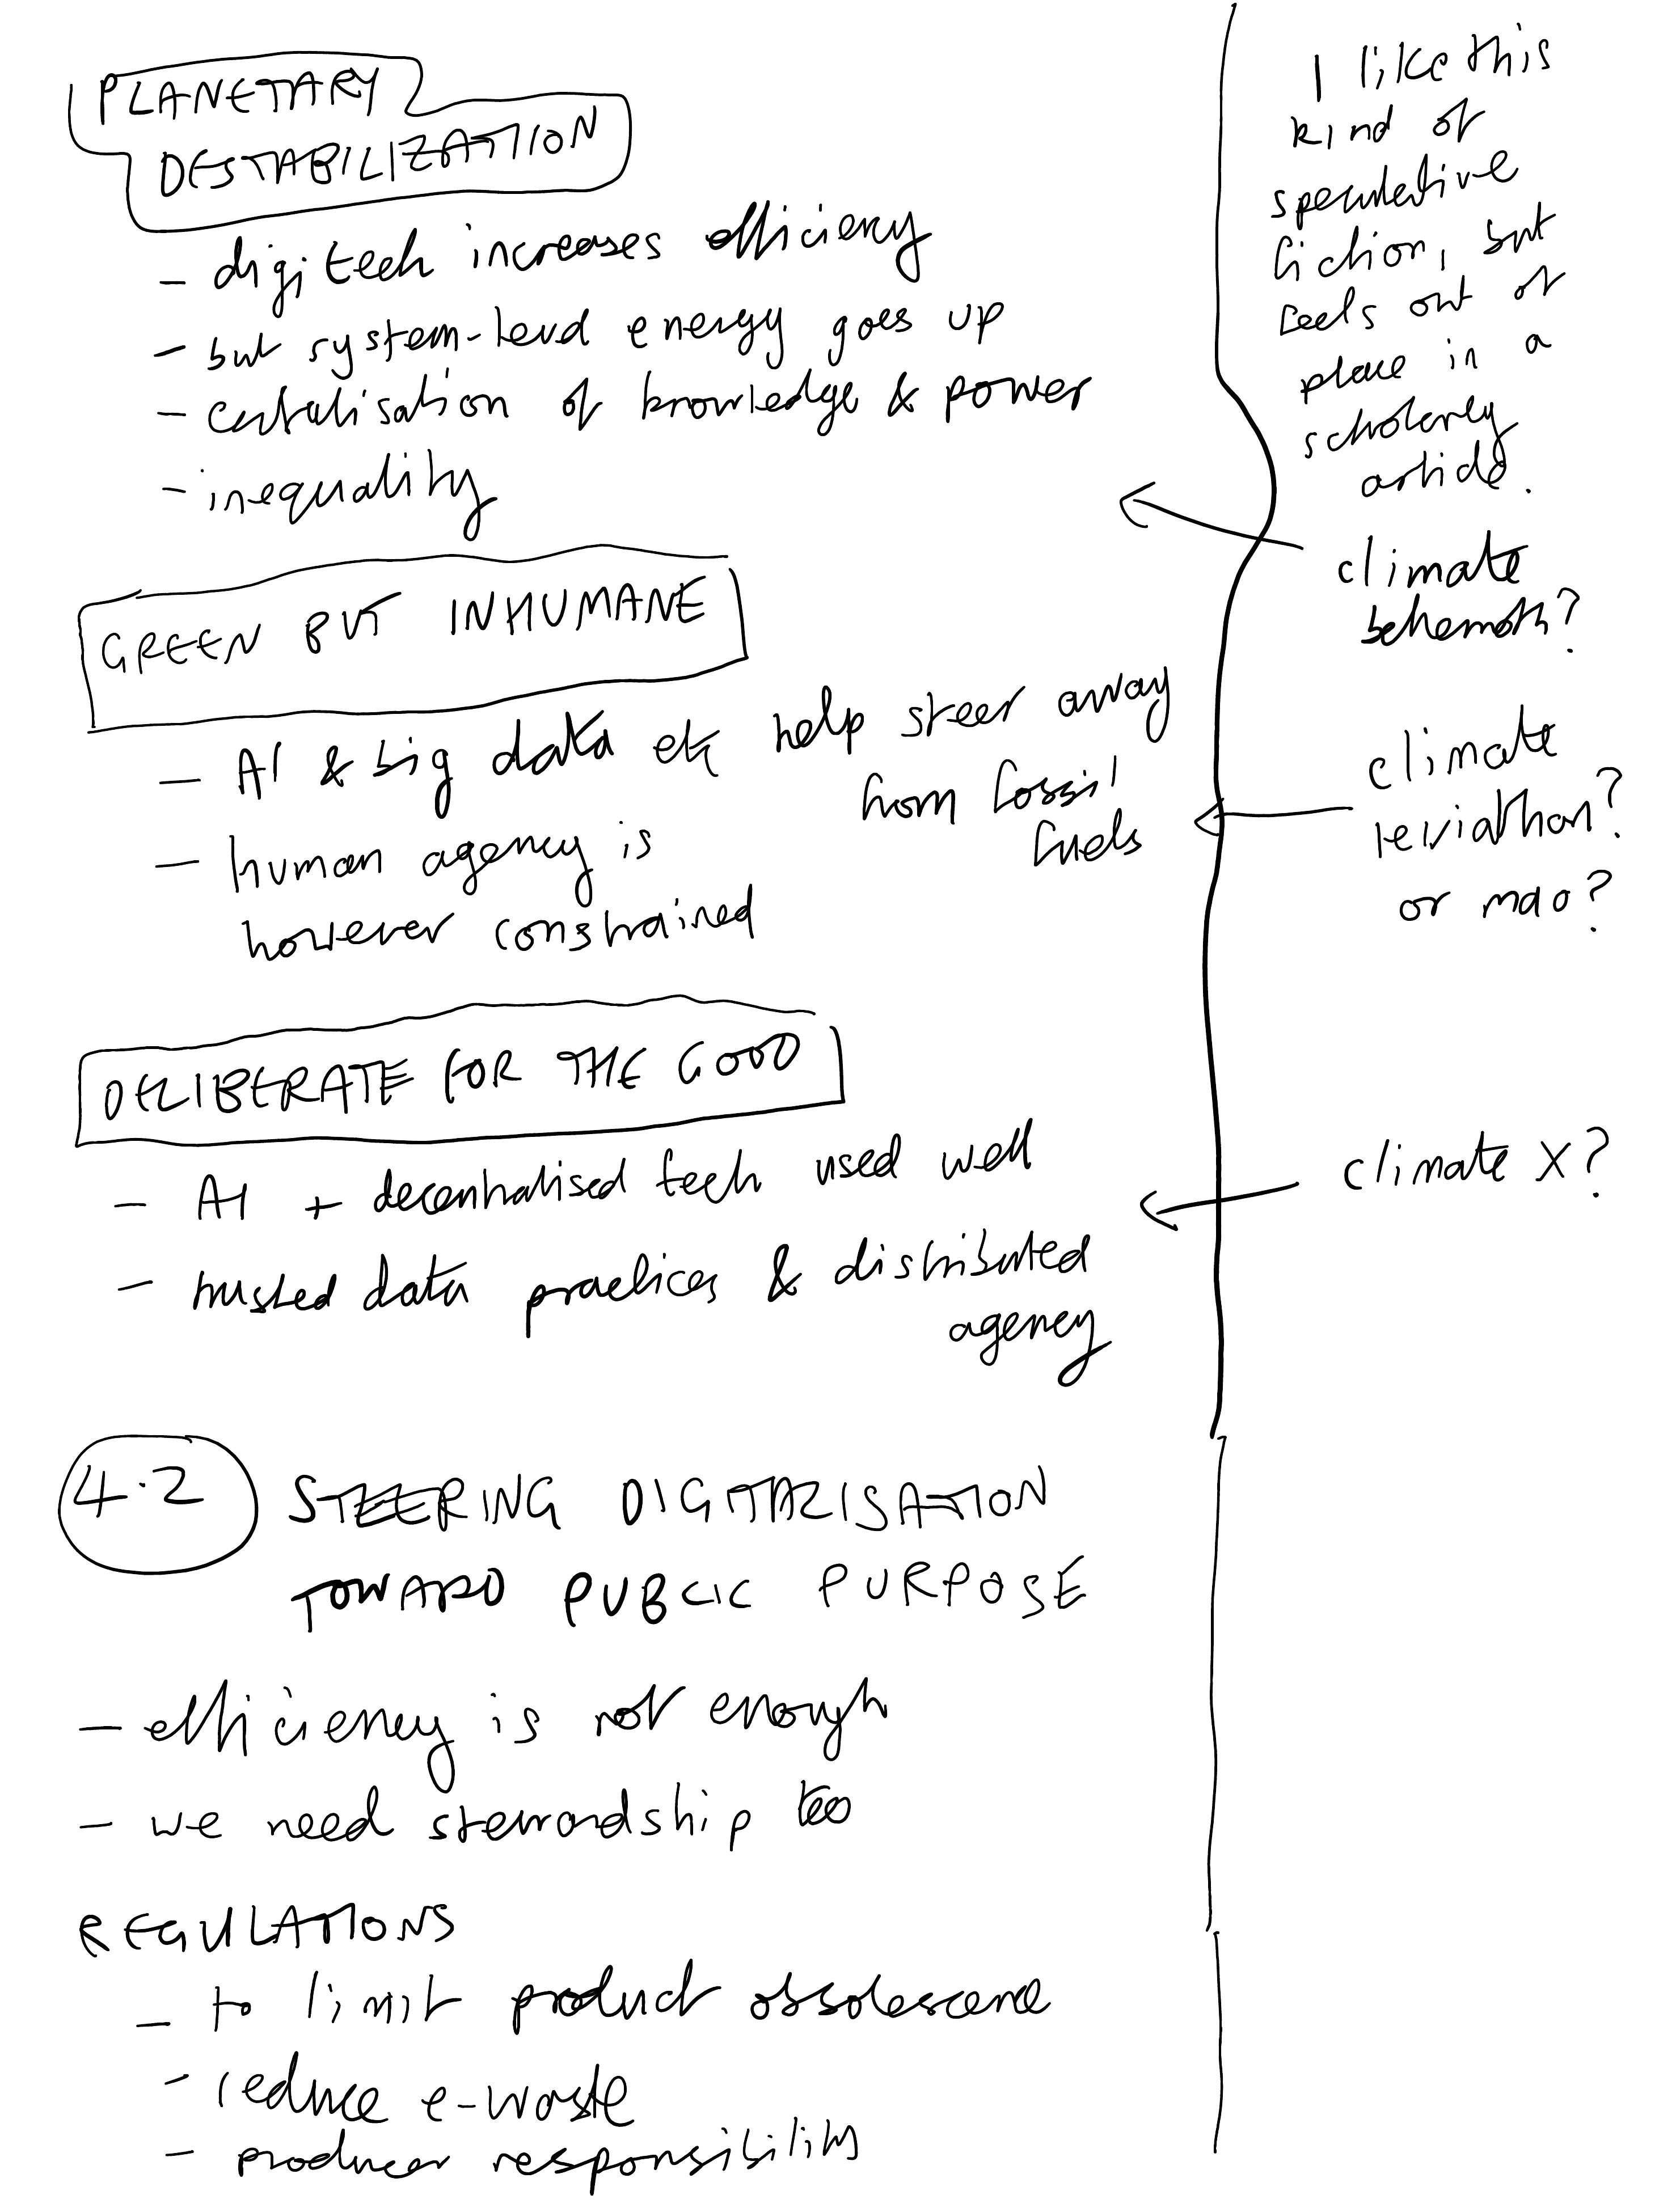 PLANETARY
DESTABILIZATION
- digitech increases efficiency
- but system-level energy goes up
- centralisation of knowledge & power
- inequality
GREEN BUT INHUMANE
- AI & big data etc help steer away
from fossil
fuels
- human agency is
however constrained
DELIBERATE FOR THE GOOD
- AI + decentralised tech used well
- trusted data practices & distributed
agency
4.2 STEERING DIGITALISATION
TOWARD PUBLIC PURPOSE
- efficiency is not enough
- we need stewardship too
REGULATIONS
- to limit product obsolescence
- reduce e-waste
- producer responsibility
I like this
kind of
speculative
fiction, but
feels out of
place in a
scholarly
article.
climate
behemoth?
climate
leviathan?
or mao?
climate X?